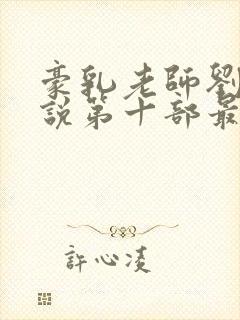 豪乳老師劉
說第十部最
許心凌